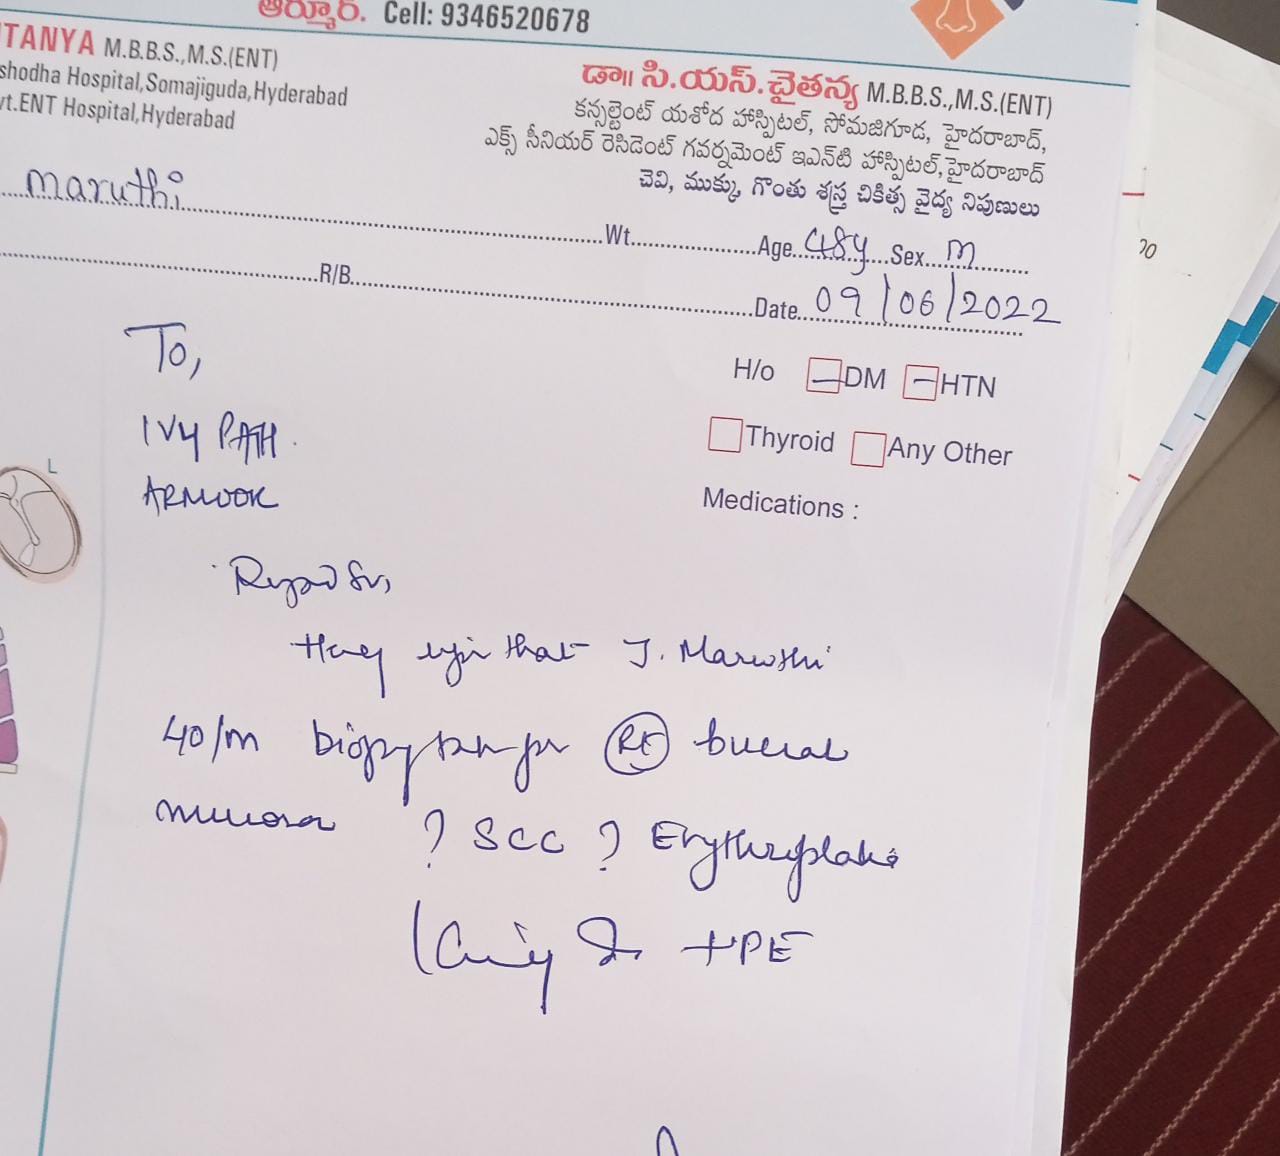 ఆర్మూర్. Cell: 9346520678
TANYA M.B.B.S.,M.S.(ENT)
shodha Hospital,Somajiguda,Hyderabad
vt.ENT Hospital,Hyderabad
డా॥ సి.యస్.చైతన్య M.B.B.S.,M.S.(ENT)
కన్సల్టెంట్ యశోద హాస్పిటల్, సోమజిగూడ, హైదరాబాద్,
ఎక్స్ సీనియర్ రెసిడెంట్ గవర్నమెంట్ ఇఎన్‌టి హాస్పిటల్,హైదరాబాద్
చెవి, ముక్కు, గొంతు శస్త్ర చికిత్స వైద్య నిపుణులు
maruthi
Wt. Age 48y Sex m
R/B. Date 09/06/2022
H/o DM HTN
Thyroid Any Other
Medications :
To,
IVY PATH.
ARMOOR
L
that J. Maruthi
40/m biopsy Rt buccal
mucosa ? SCC ? Erythroplakia
HPE